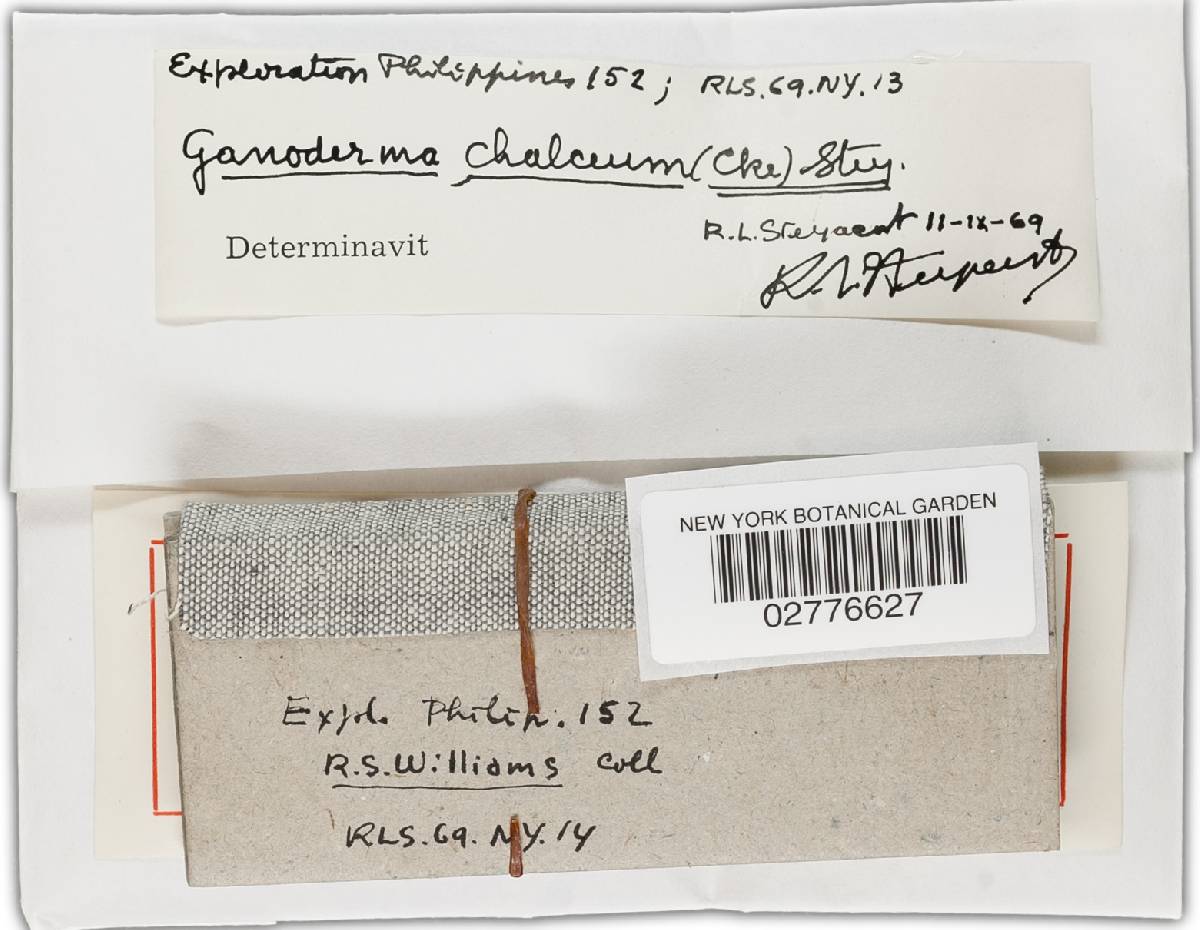 Exploration Philippines 152; RLS.69.NY.13
Ganoderma chalceum (Cke) Stey.
R.L.Steyaert 11-IX-69
Determinavit
R.L.Steyaert
NEW YORK BOTANICAL GARDEN
02776627
Expl. Philip. 152
R.S.Williams Coll
RLS.69.NY.14